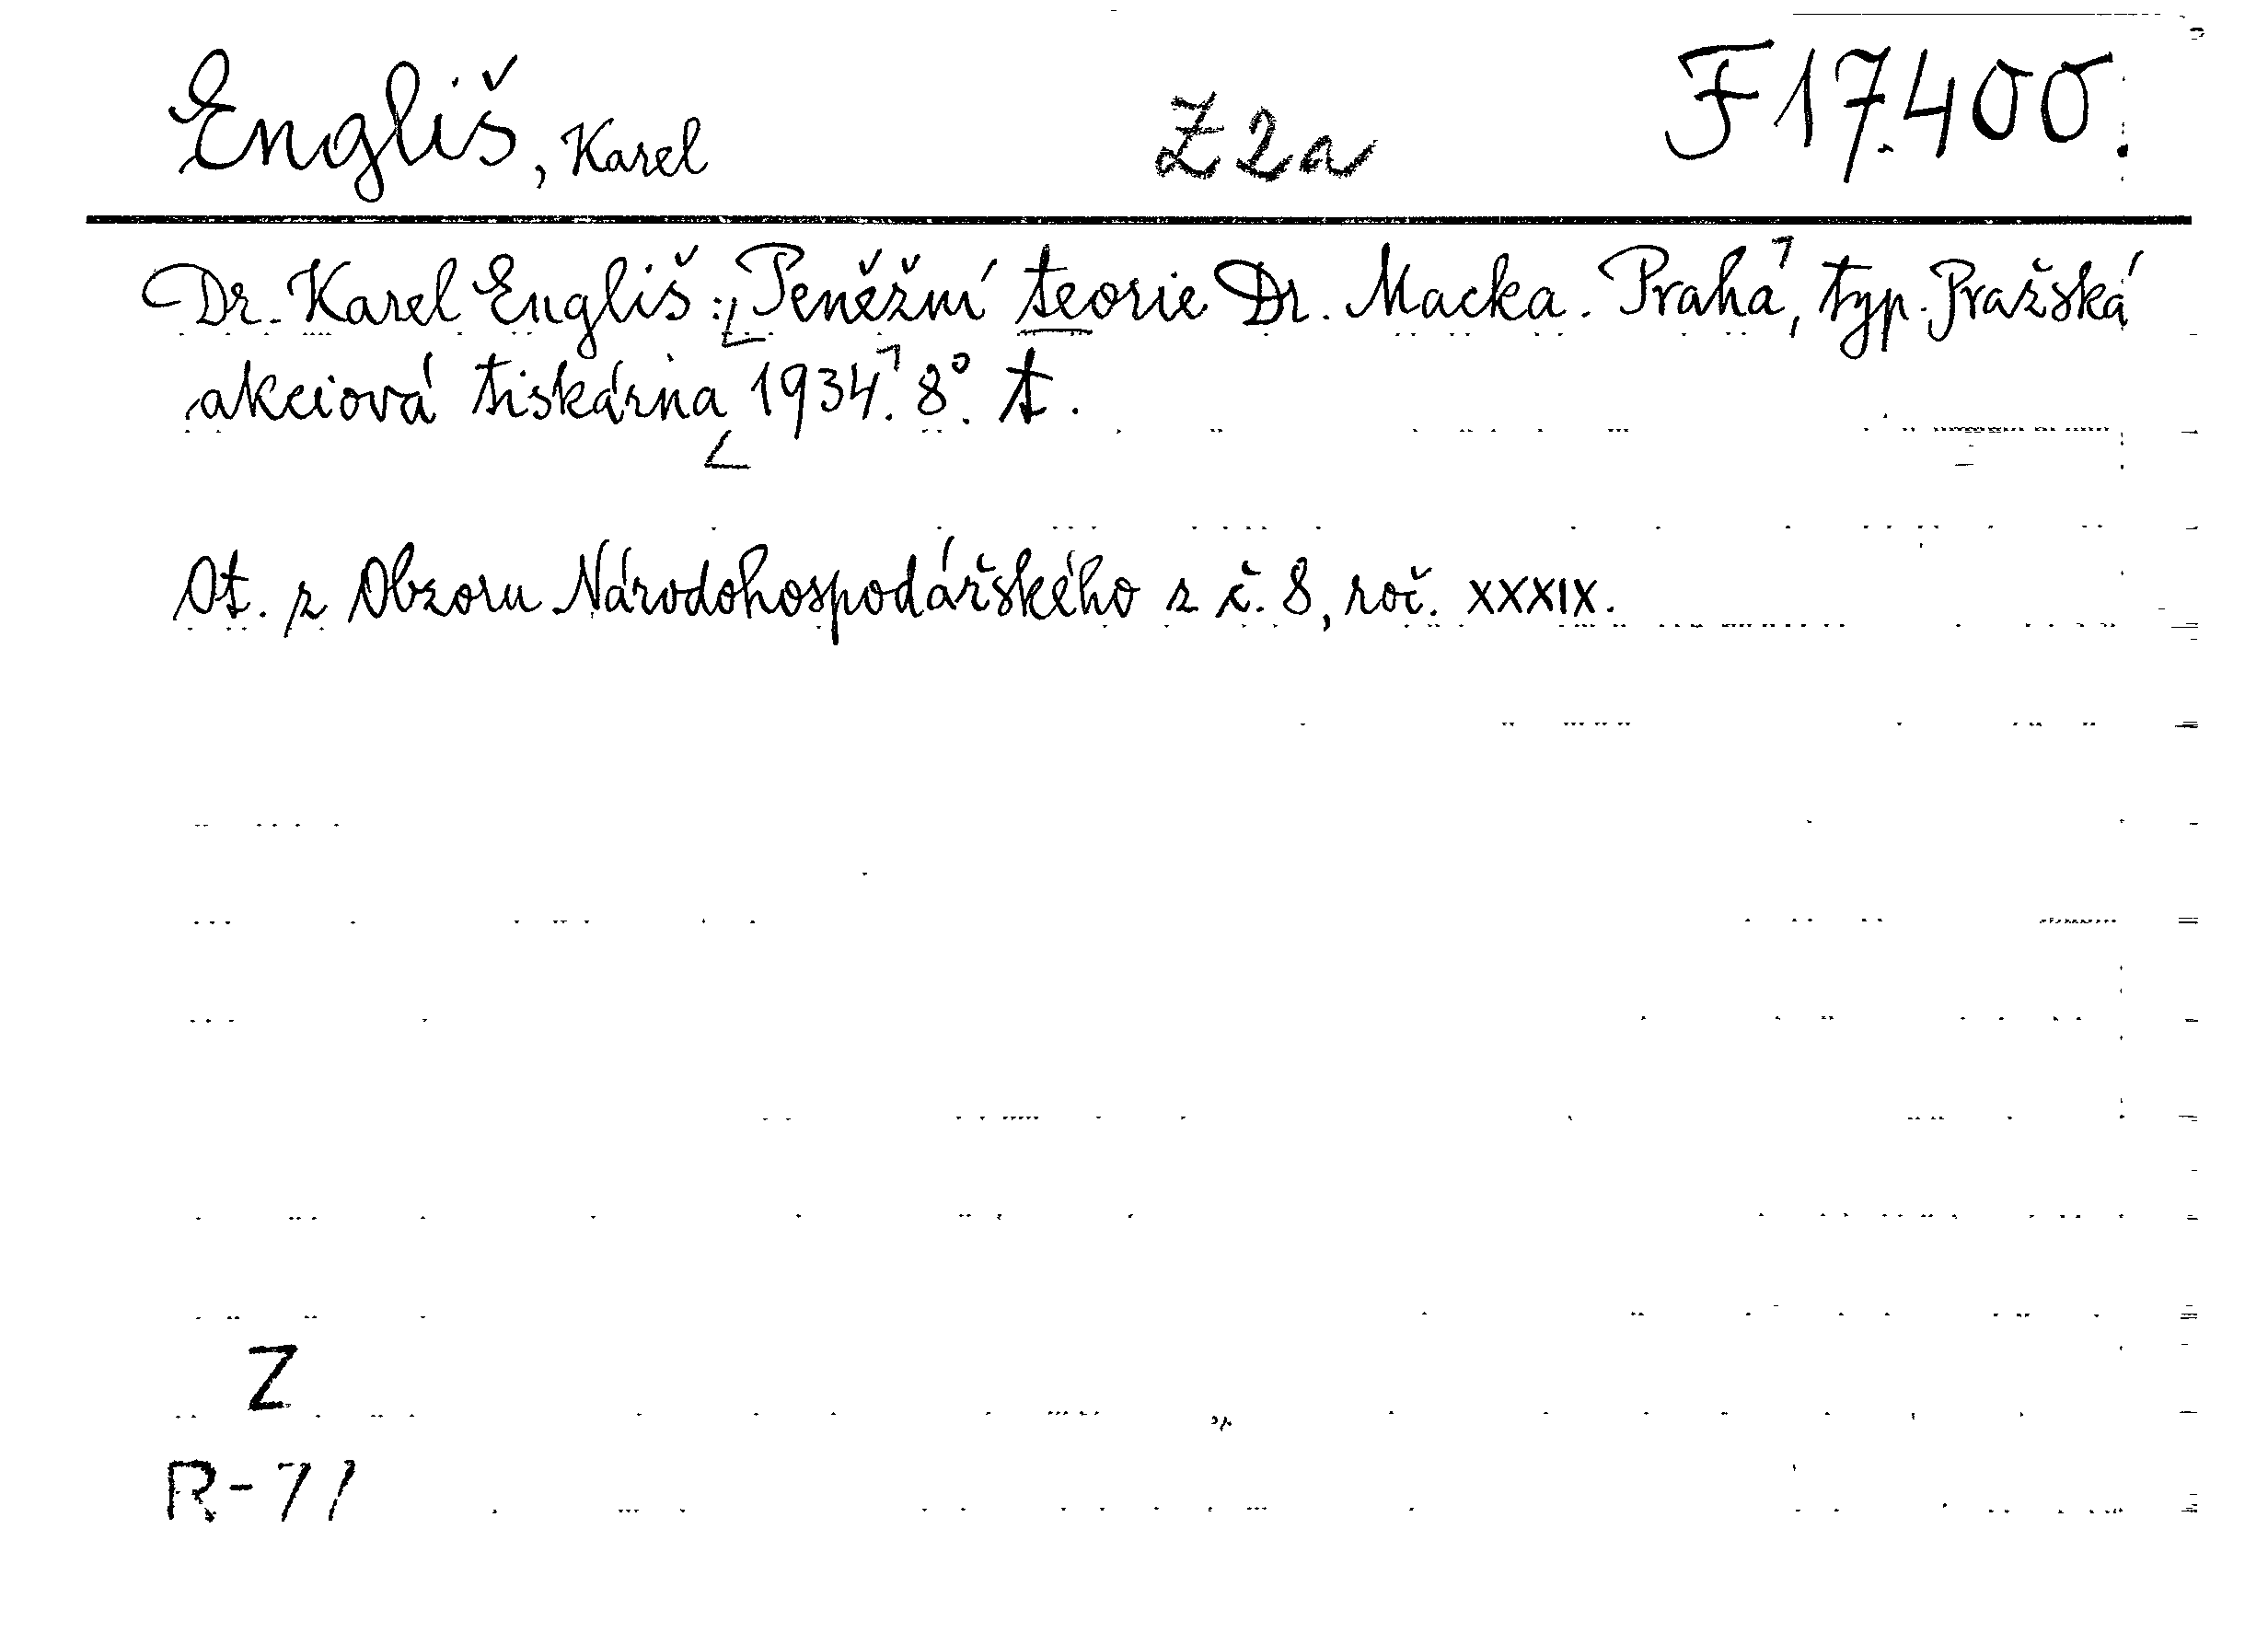 Engliš, Karel Z2a F17.400.
Dr. Karel Engliš: Peněžní teorie Dr. Macka. Praha, typ. Pražská
akciová tiskárna 1934. 8°. t.
Ot. z Obzoru Národohospodářského z č. 8, roč. XXXIX.
Z
R-71